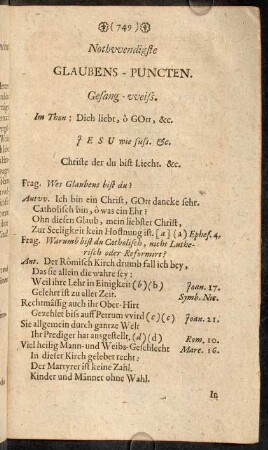 (749)
Nothvvendigste
GLAUBENS - PUNCTEN.
Gesang-vveiß.
Im Thon; Dich liebt, ò GOtt, &c.
JESU wie süß. &c.
Christe der du bist Liecht. &c.
Frag. Wer Glaubens bist du?
Antvv. Ich bin ein Christ, GOtt dancke sehr.
Catholisch bin, ò was ein Ehr?
Ohn diesen Glaub, mein liebster Christ,
Zur Seeligkeit kein Hoffnung ist. [a] (a) Ephes. 4.
Frag. Warumb bist du Catholisch, nicht Luthe-
risch oder Reformirt?
Ant. Der Römisch Kirch drumb fall ich bey,
Das sie allein die wahre sey:
Weil ihre Lehr in Einigkeit (b) (b) Joan. 17.
Gelehrt ist zu aller Zeit. Symb. Nic.
Rechtmässig auch ihr Ober-Hirt
Gezehlet biss auff Petrum vvird (c) (c) Joan. 21.
Sie allgemein durch gantze Welt
Ihr Prediger hat ausgestellt, (d) (d) Rom. 10.
Viel heilig Mann- und Weibs-Geschlecht Marc. 16.
In dieser Kirch gelebet recht:
Der Martyrer ist keine Zahl,
Kinder und Männer ohne Wahl.
In